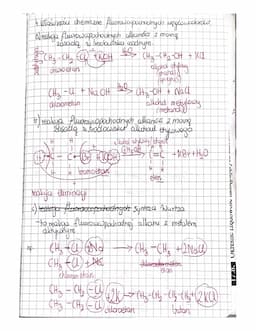 4. Właściwości chemiczne fluorowcopochodnych węglowodorów
a) reakcja fluorowcopochodnych alkanów z mocną
zasadą w środowisku wodnym
CH₃-CH₂-Cl + KOH H₂O→ CH₃-CH₂-OH + KCl
chloroetan
alkohol etylowy
(etanol)
CH₃-Cl + NaOH H₂O→ CH₃-OH + NaCl
chlorometan
alkohol metylowy
(metanol)
b) reakcja fluorowcopochodnych alkanów z mocną
zasadą w środowisku alkoholu etylowego
H H
C C Br + KOH
C = C + KBr + H₂O
H H
bromoetan
eten
reakcja eliminacji
c) synteza Würtza
-to reakcja fluorowcopochodnej alkanu z metalem
aktywnym
CH₃-Cl + 2Na → CH₃-CH₃ + 2NaCl
CH₃-Cl
chlorometan
etan
CH₃-CH₂-Cl + 2K → CH₃-CH₂-CH₂-CH₃ + 2KCl
CH₃-CH₂-Cl
chloroetan
butan